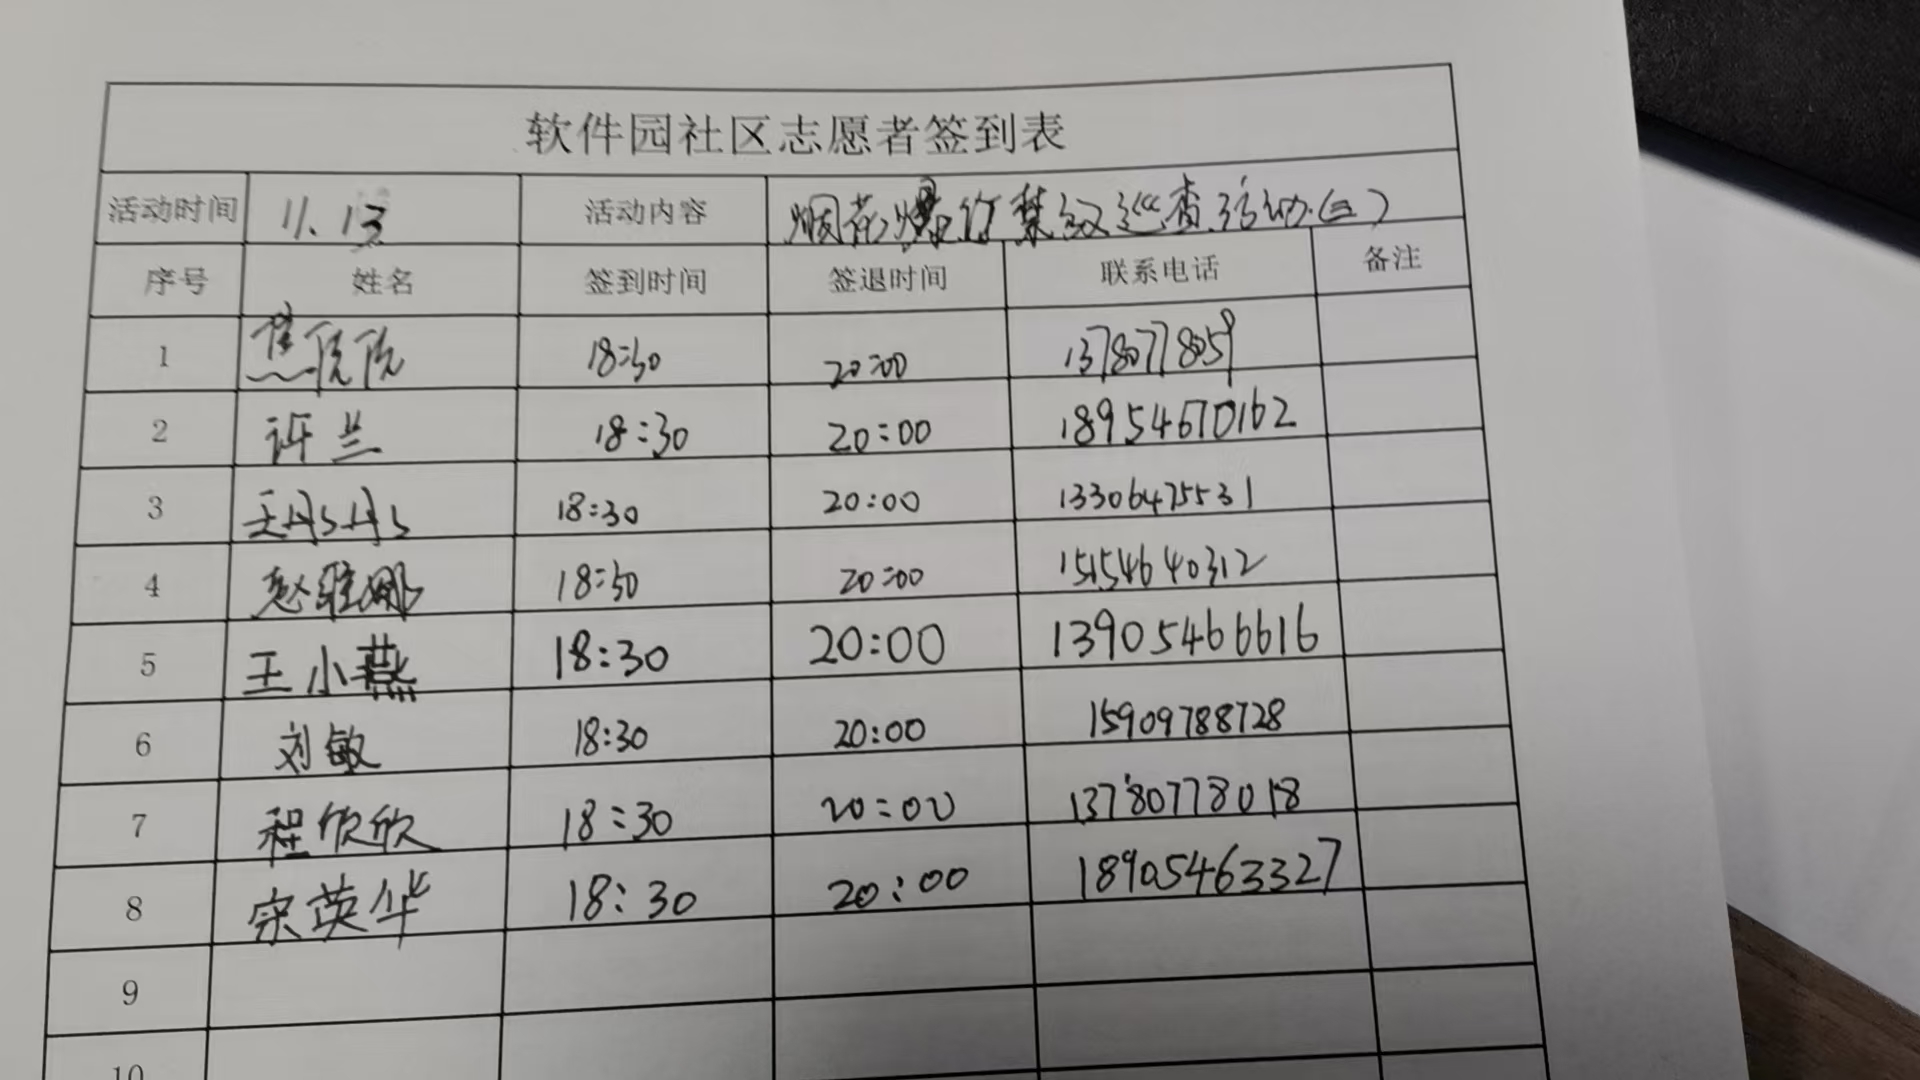 软件园社区志愿者签到表
活动时间 11.13 活动内容 烟花爆竹禁放巡查活动(三)
序号 姓名 签到时间 签退时间 联系电话 备注
1 18:30 20:00
2 许兰 18:30 20:00 18954670162
3 王丹丹 18:30 20:00 13306475531
4 18:30 20:00 15154640312
5 王小燕 18:30 20:00 13905466616
6 刘敏 18:30 20:00 15909788728
7 程欣欣 18:30 20:00 13780778018
8 宋英华 18:30 20:00 18905463327
9
10